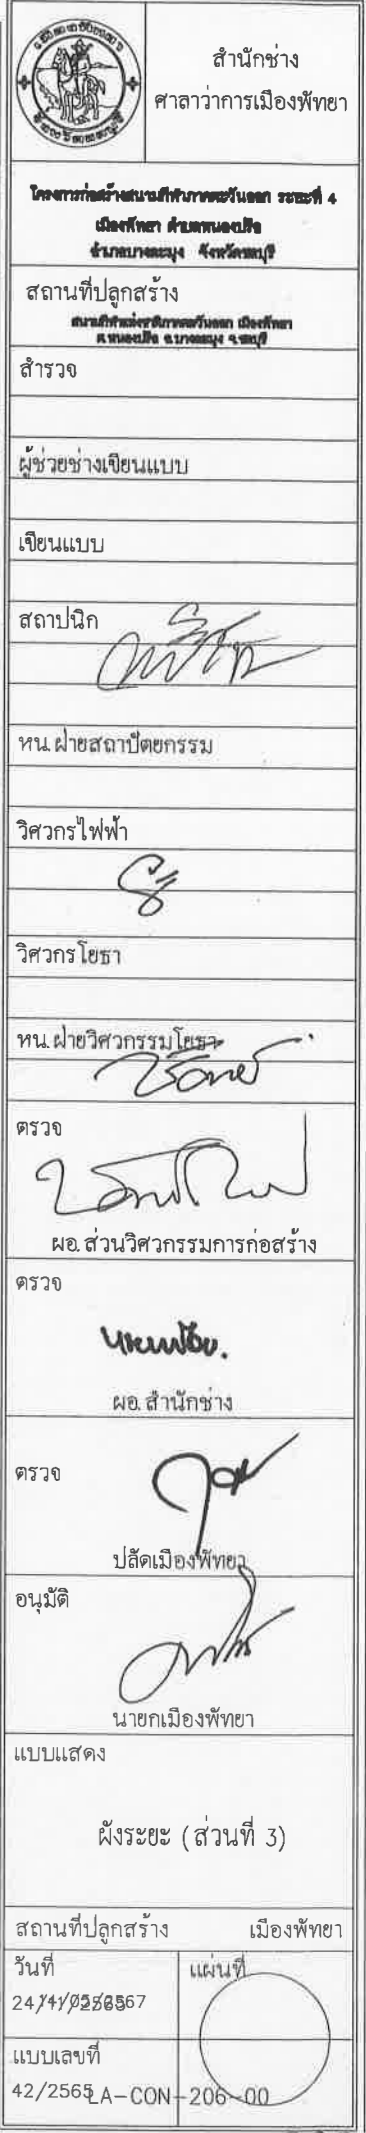 สำนักช่าง
ศาลาว่าการเมืองพัทยา
โครงการก่อสร้างสนามกีฬาภาคตะวันออก ระยะที่ 4
เมืองพัทยา ตำบลหนองปรือ
อำเภอบางละมุง จังหวัดชลบุรี
สถานที่ปลูกสร้าง
สนามกีฬาแห่งชาติภาคตะวันออก เมืองพัทยา
ต.หนองปรือ อ.บางละมุง จ.ชลบุรี
สำรวจ
ผู้ช่วยช่างเขียนแบบ
เขียนแบบ
สถาปนิก
หน.ฝ่ายสถาปัตยกรรม
วิศวกรไฟฟ้า
วิศวกรโยธา
หน.ฝ่ายวิศวกรรมโยธา
ตรวจ
ผอ.ส่วนวิศวกรรมการก่อสร้าง
ตรวจ
ผอ.สำนักช่าง
ตรวจ
ปลัดเมืองพัทยา
อนุมัติ
นายกเมืองพัทยา
แบบแสดง
ผังระยะ (ส่วนที่ 3)
สถานที่ปลูกสร้าง เมืองพัทยา
วันที่ แผ่นที่
แบบเลขที่
42/2565 LA-CON-206-00